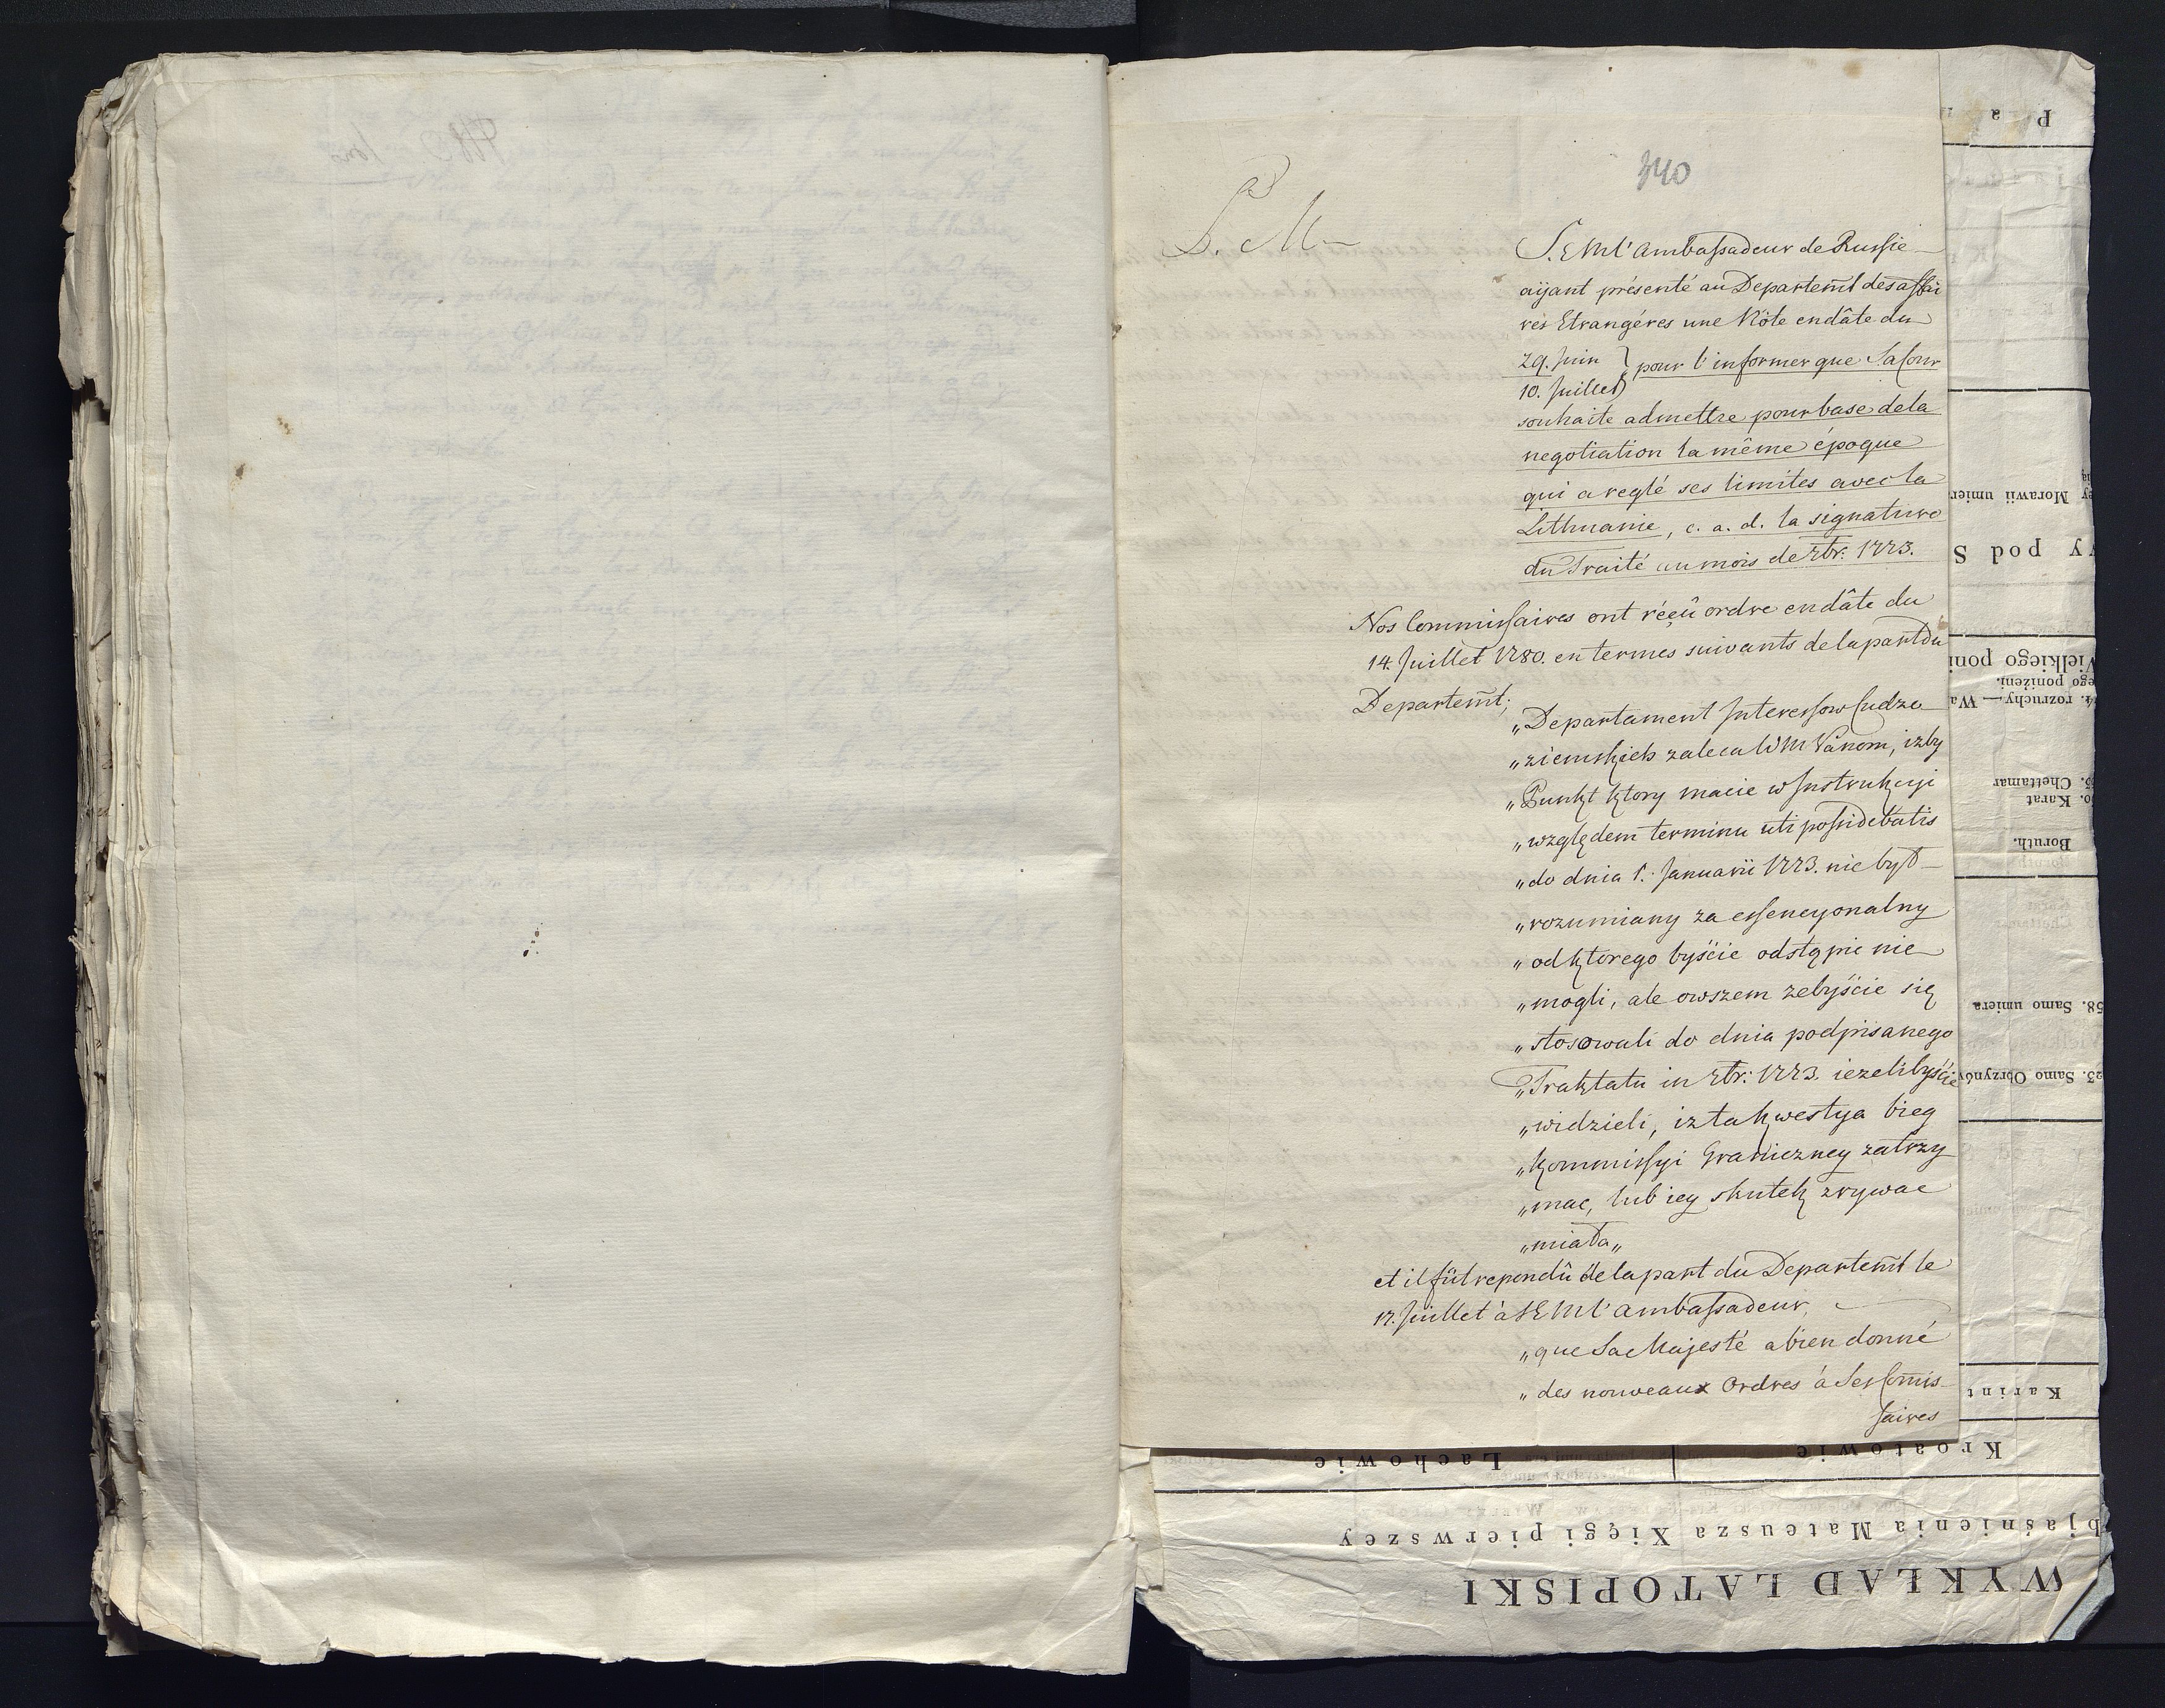 340
P. M.
S. E. M l'ambassadeur de Russie
aÿant présenté au Departem̃t des affai
res Etrangéres une Nôte en dâte du
29. Juin } pour l'informer que Sa Cour
10. Juillet
souhaite admettre pour base de la
negotiation la même époque
qui a reglé ses limites avec la
Lithuanie, c. a. d. la signature
du Traité au mois de 7br: 1773.
Nos Commissaires ont réçû ordre en dâte du
14. Juillet 1780. en termes suivants de la part du
Departem̃t;
„Departament Interessow Cudzo
„ziemskich zaleca WM Panom, izby
„Punkt ktory macie w Instrukcyi
„względem terminu uti possidebatis
„do dnia 1. Januarii 1773. nie był
„rozumiany za essencyonalny
„od ktorego byście odstąpic nie
„mogli, ale owszem zebyście się
„stosowali do dnia podpisanego
„Traktatu in 7br: 1773. iezelibyście
„widzieli, iz ta kwestya bieg
„kommissyi Graniczney zatrzy
„mac, lub iey skutek zrywac
„miała„
et il fût repondû de la part du Departem̃t le
17. Juillet à S E M l'ambassadeur,
„que Sa Majesté a bien donné
„des nouveaux Ordres à Ses Com̃is
saires
P a
Morawii umier
y pod S
Wielkiego poni
ego poniżeni.
4. rozruchy.—Wa
5. Chettamar
o. Karat
Boruth.
58. Samo umiera
23. Samo Obrzynów
Karint
Kroatowie
Lachowie
bjaśnienia Mateusza Xięgi pierwszey
WYKŁAD LATOPISKI